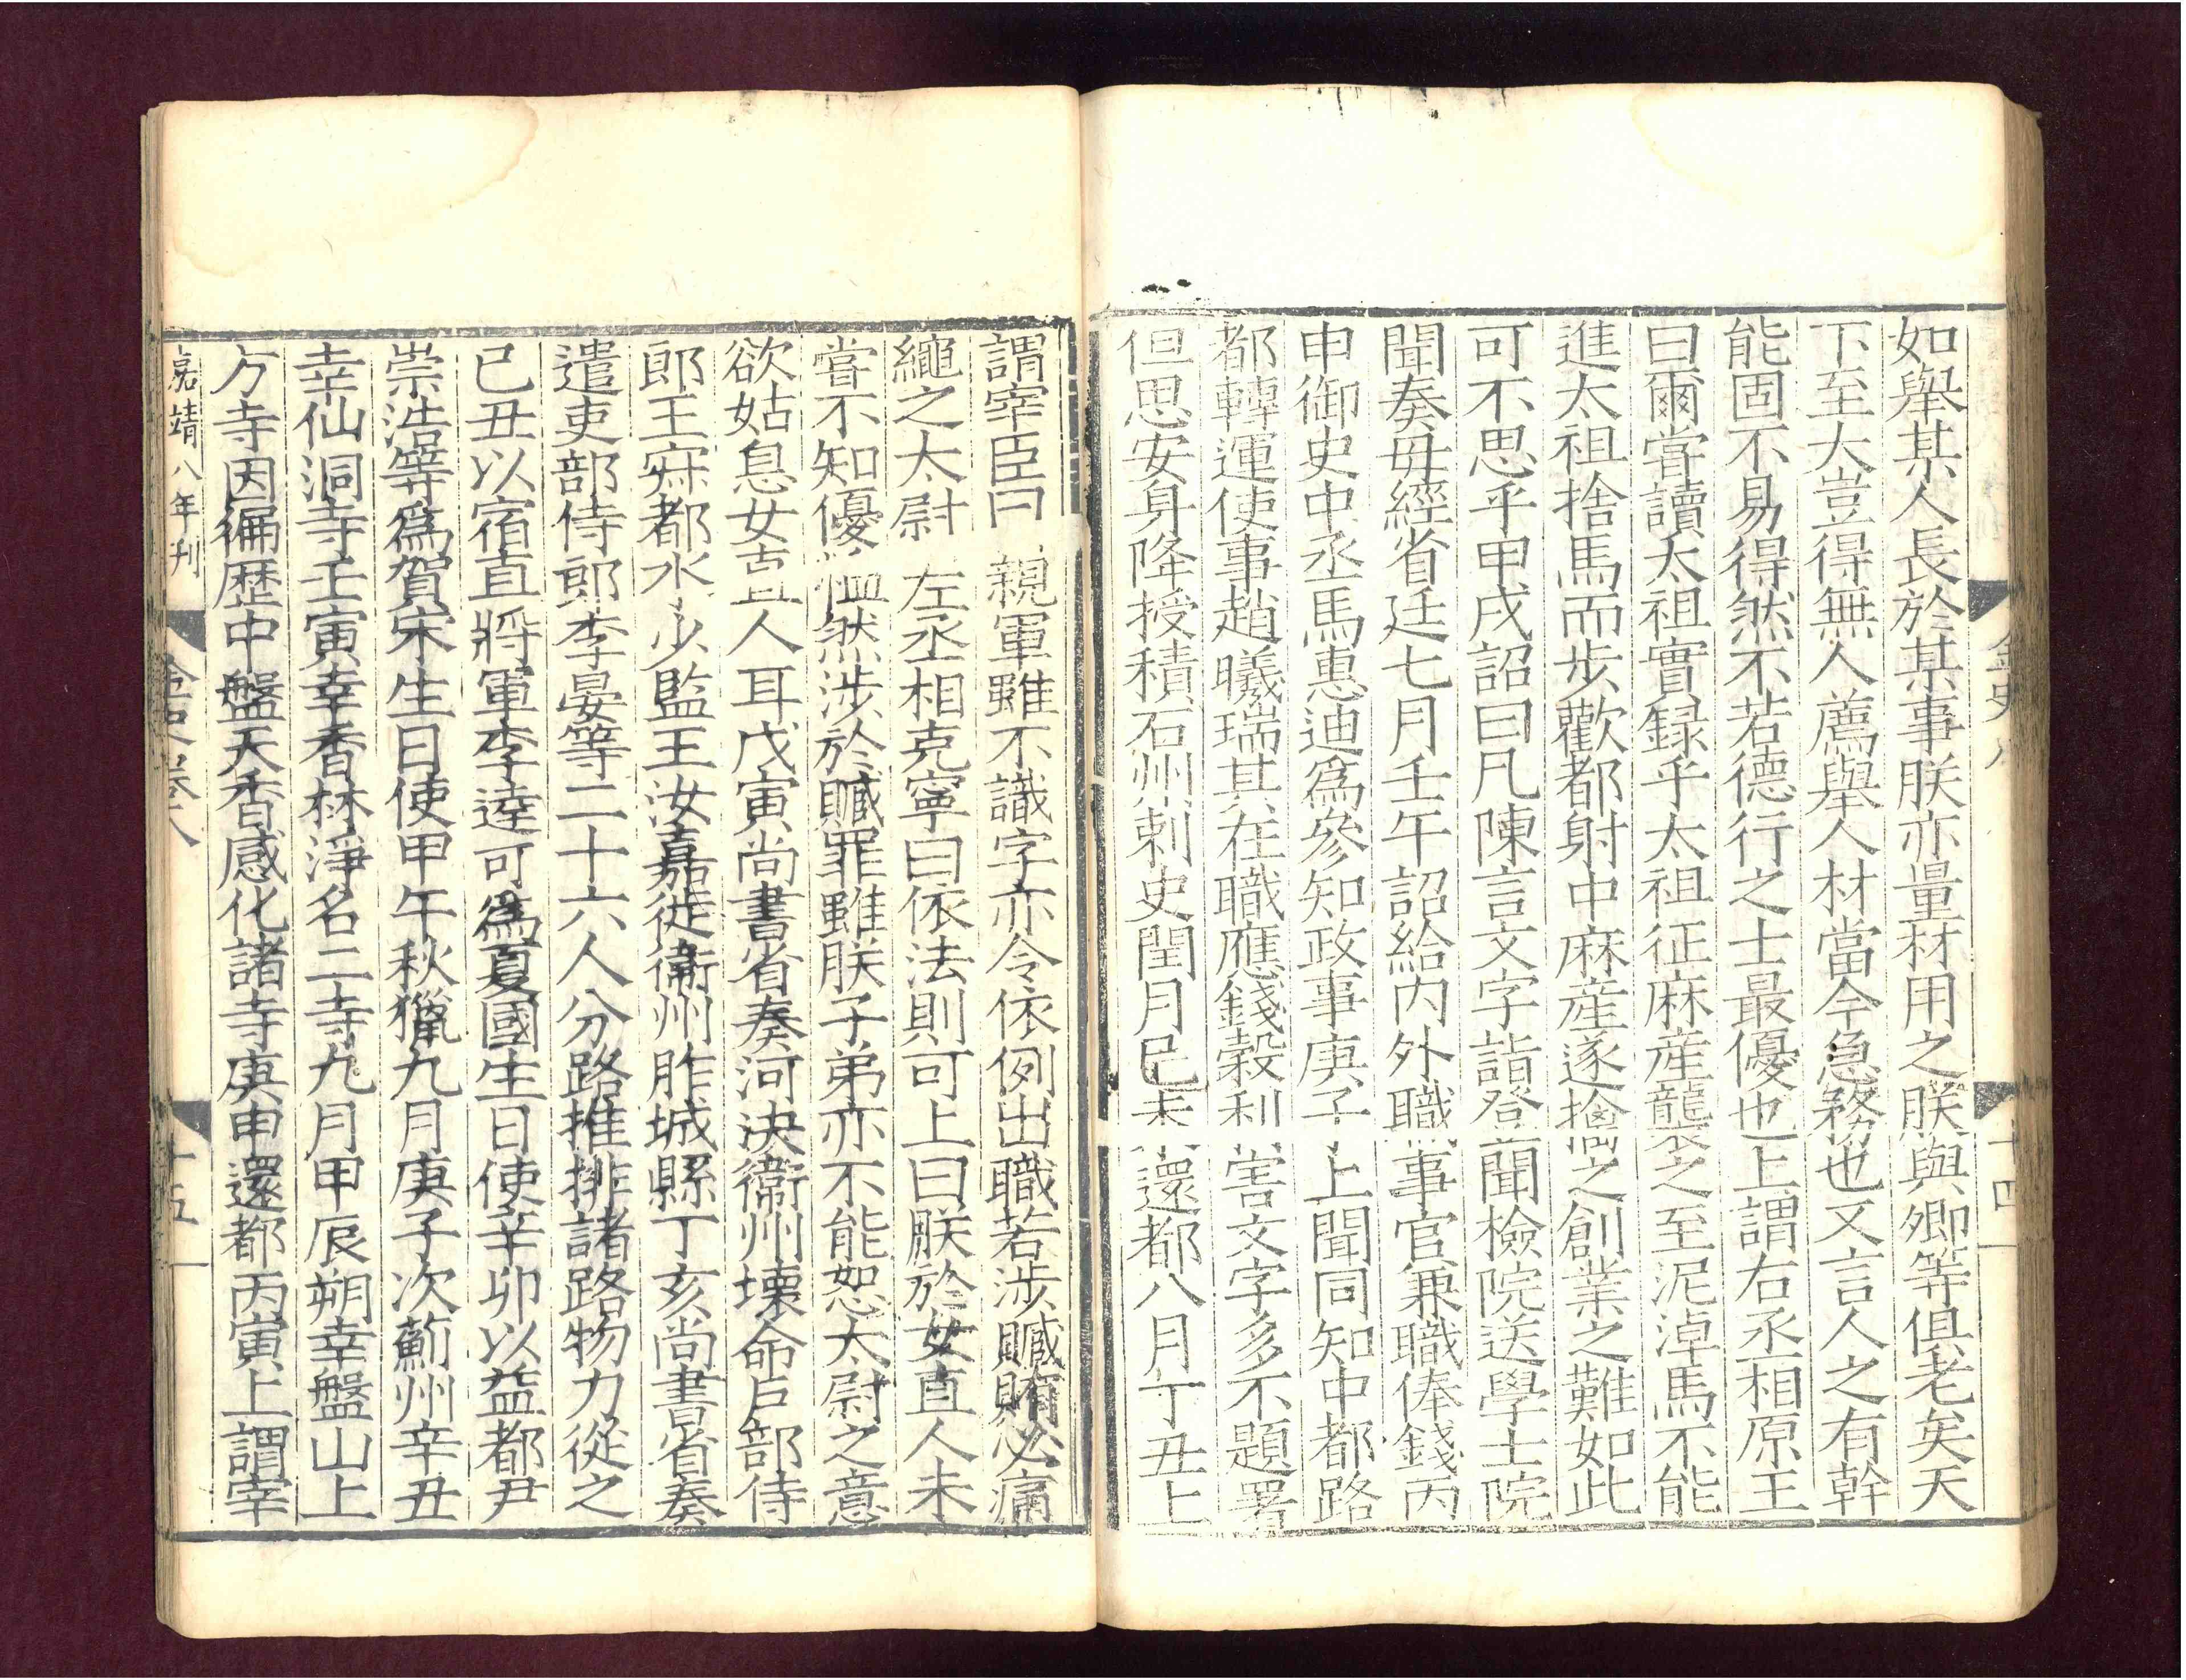 如舉某人長於某事朕亦量材用之朕與卿等俱老矣天
下至大豈得無人薦舉人材當今急務也又言人之有幹
能固不易得然不若德行之士最優也上謂右丞相原王
曰爾嘗讀太祖實録乎太祖征麻産襲之至泥淖馬不能
進太祖捨馬而步歡都射中麻産遂擒之創業之難如此
可不思乎甲戌詔曰凡陳言文字詣登聞檢院送學士院
聞奏毋經省廷七月壬午詔給内外職事官兼職俸錢丙
申御史中丞馬惠迪爲參知政事庚子上聞同知中都路
都轉運使事趙曦瑞其在職應錢穀利害文字多不題署
但思安身降授積石州刺史閏月己未還都八月丁丑上
金史八
十四
謂宰臣曰親軍雖不識字亦令依例出職若涉贓賄必痛
繩之太尉左丞相克寧曰依法則可上曰朕於女直人未
嘗不知優恤然涉於贓罪雖朕子弟亦不能恕太尉之意
欲姑息女直人耳戊寅尚書省奏河決衞州壞命戸部侍
郎王寂都水少監王汝嘉徙衞州胙城縣丁亥尚書省奏
遣吏部侍郎李晏等二十六人分路推排諸路物力從之
己丑以宿直將軍李達可爲夏國生日使辛卯以益都尹
崇浩等爲賀宋生日使甲午秋獵九月庚子次薊州辛丑
幸仙洞寺壬寅幸香林淨名二寺九月甲辰朔幸盤山上
方寺因徧歷中盤天香感化諸寺庚申還都丙寅上謂宰
嘉靖八年刊
金史卷八
十五